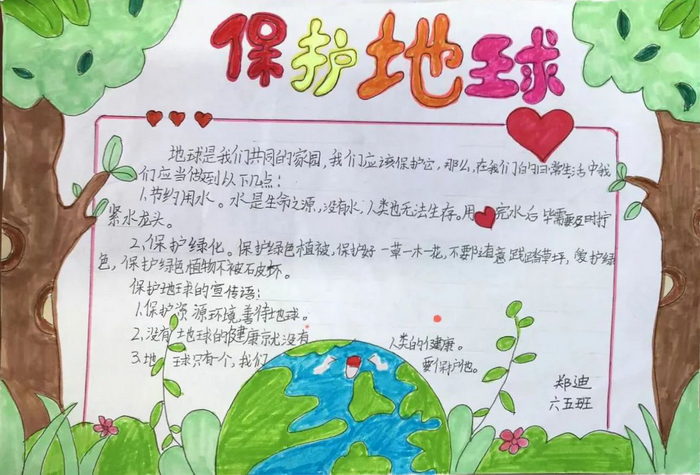 保护地球
地球是我们共同的家园，我们应该保护它，那么，在我们的日常生活中我
们应当做到以下几点：
1.节约用水。水是生命之源，没有水，人类也无法生存。用完水后 需要及时拧
紧水龙头。
2.保护绿化。保护绿色植被，保护好一草一木一花，不要随意践踏草坪，爱护绿
色，保护绿色植物不被破坏。
保护地球的宣传语：
1.保护资源环境善待地球。
2.没有地球的健康就没有 人类的健康。
3.地球只有个，我们 要保护他。
郑迪
六五班